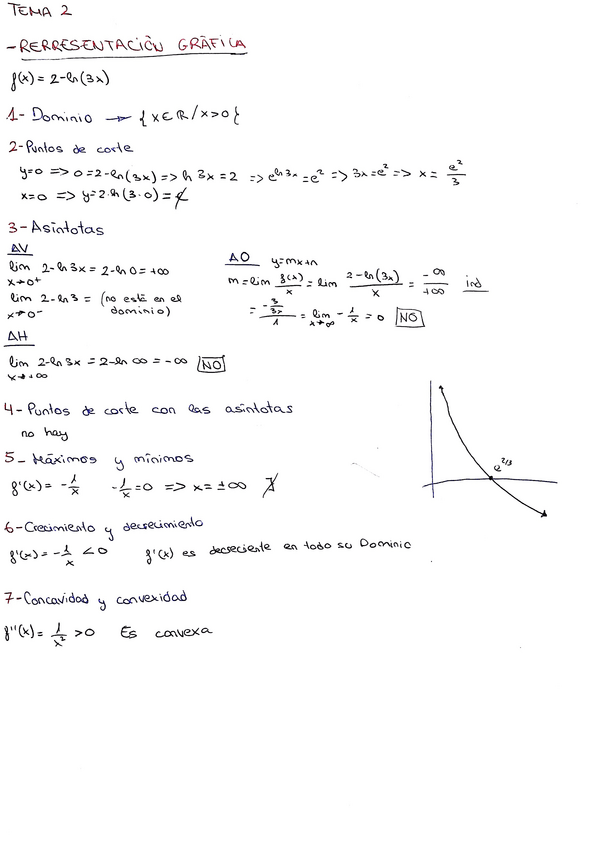 TEMA 2
- RERRESENTACIÓN GRÁFICA
f(x) = 2-ln(3x)
1- Dominio → {x∈R/x>0}
2-Puntos de corte
y=0 => 0=2-ln(3x) => ln 3x = 2 => e^ln3x = e² => 3x=e² => x = e²/3
x=0 => y=2·ln(3·0) = ∄
3-Asíntotas
AV
lim x→0+ 2-ln 3x = 2-ln 0 = +∞
lim x→0- 2-ln 3 = (no está en el dominio)
AH
lim x→+∞ 2-ln 3x = 2-ln ∞ = -∞ NO
AO y=mx+n
m = lim f(x)/x = lim 2-ln(3x)/x = -∞/+∞ ind
= (-3/3x)/1 = lim x→∞ -1/x = 0 NO
4-Puntos de corte con las asíntotas
no hay
5- Máximos y mínimos
f'(x) = -1/x -1/x = 0 => x = ±∞ ∄
e^2/3
6-Crecimiento y decrecimiento
f'(x) = -1/x < 0 f'(x) es decreciente en todo su Dominio
7-Concavidad y convexidad
f''(x) = 1/x² > 0 Es convexa